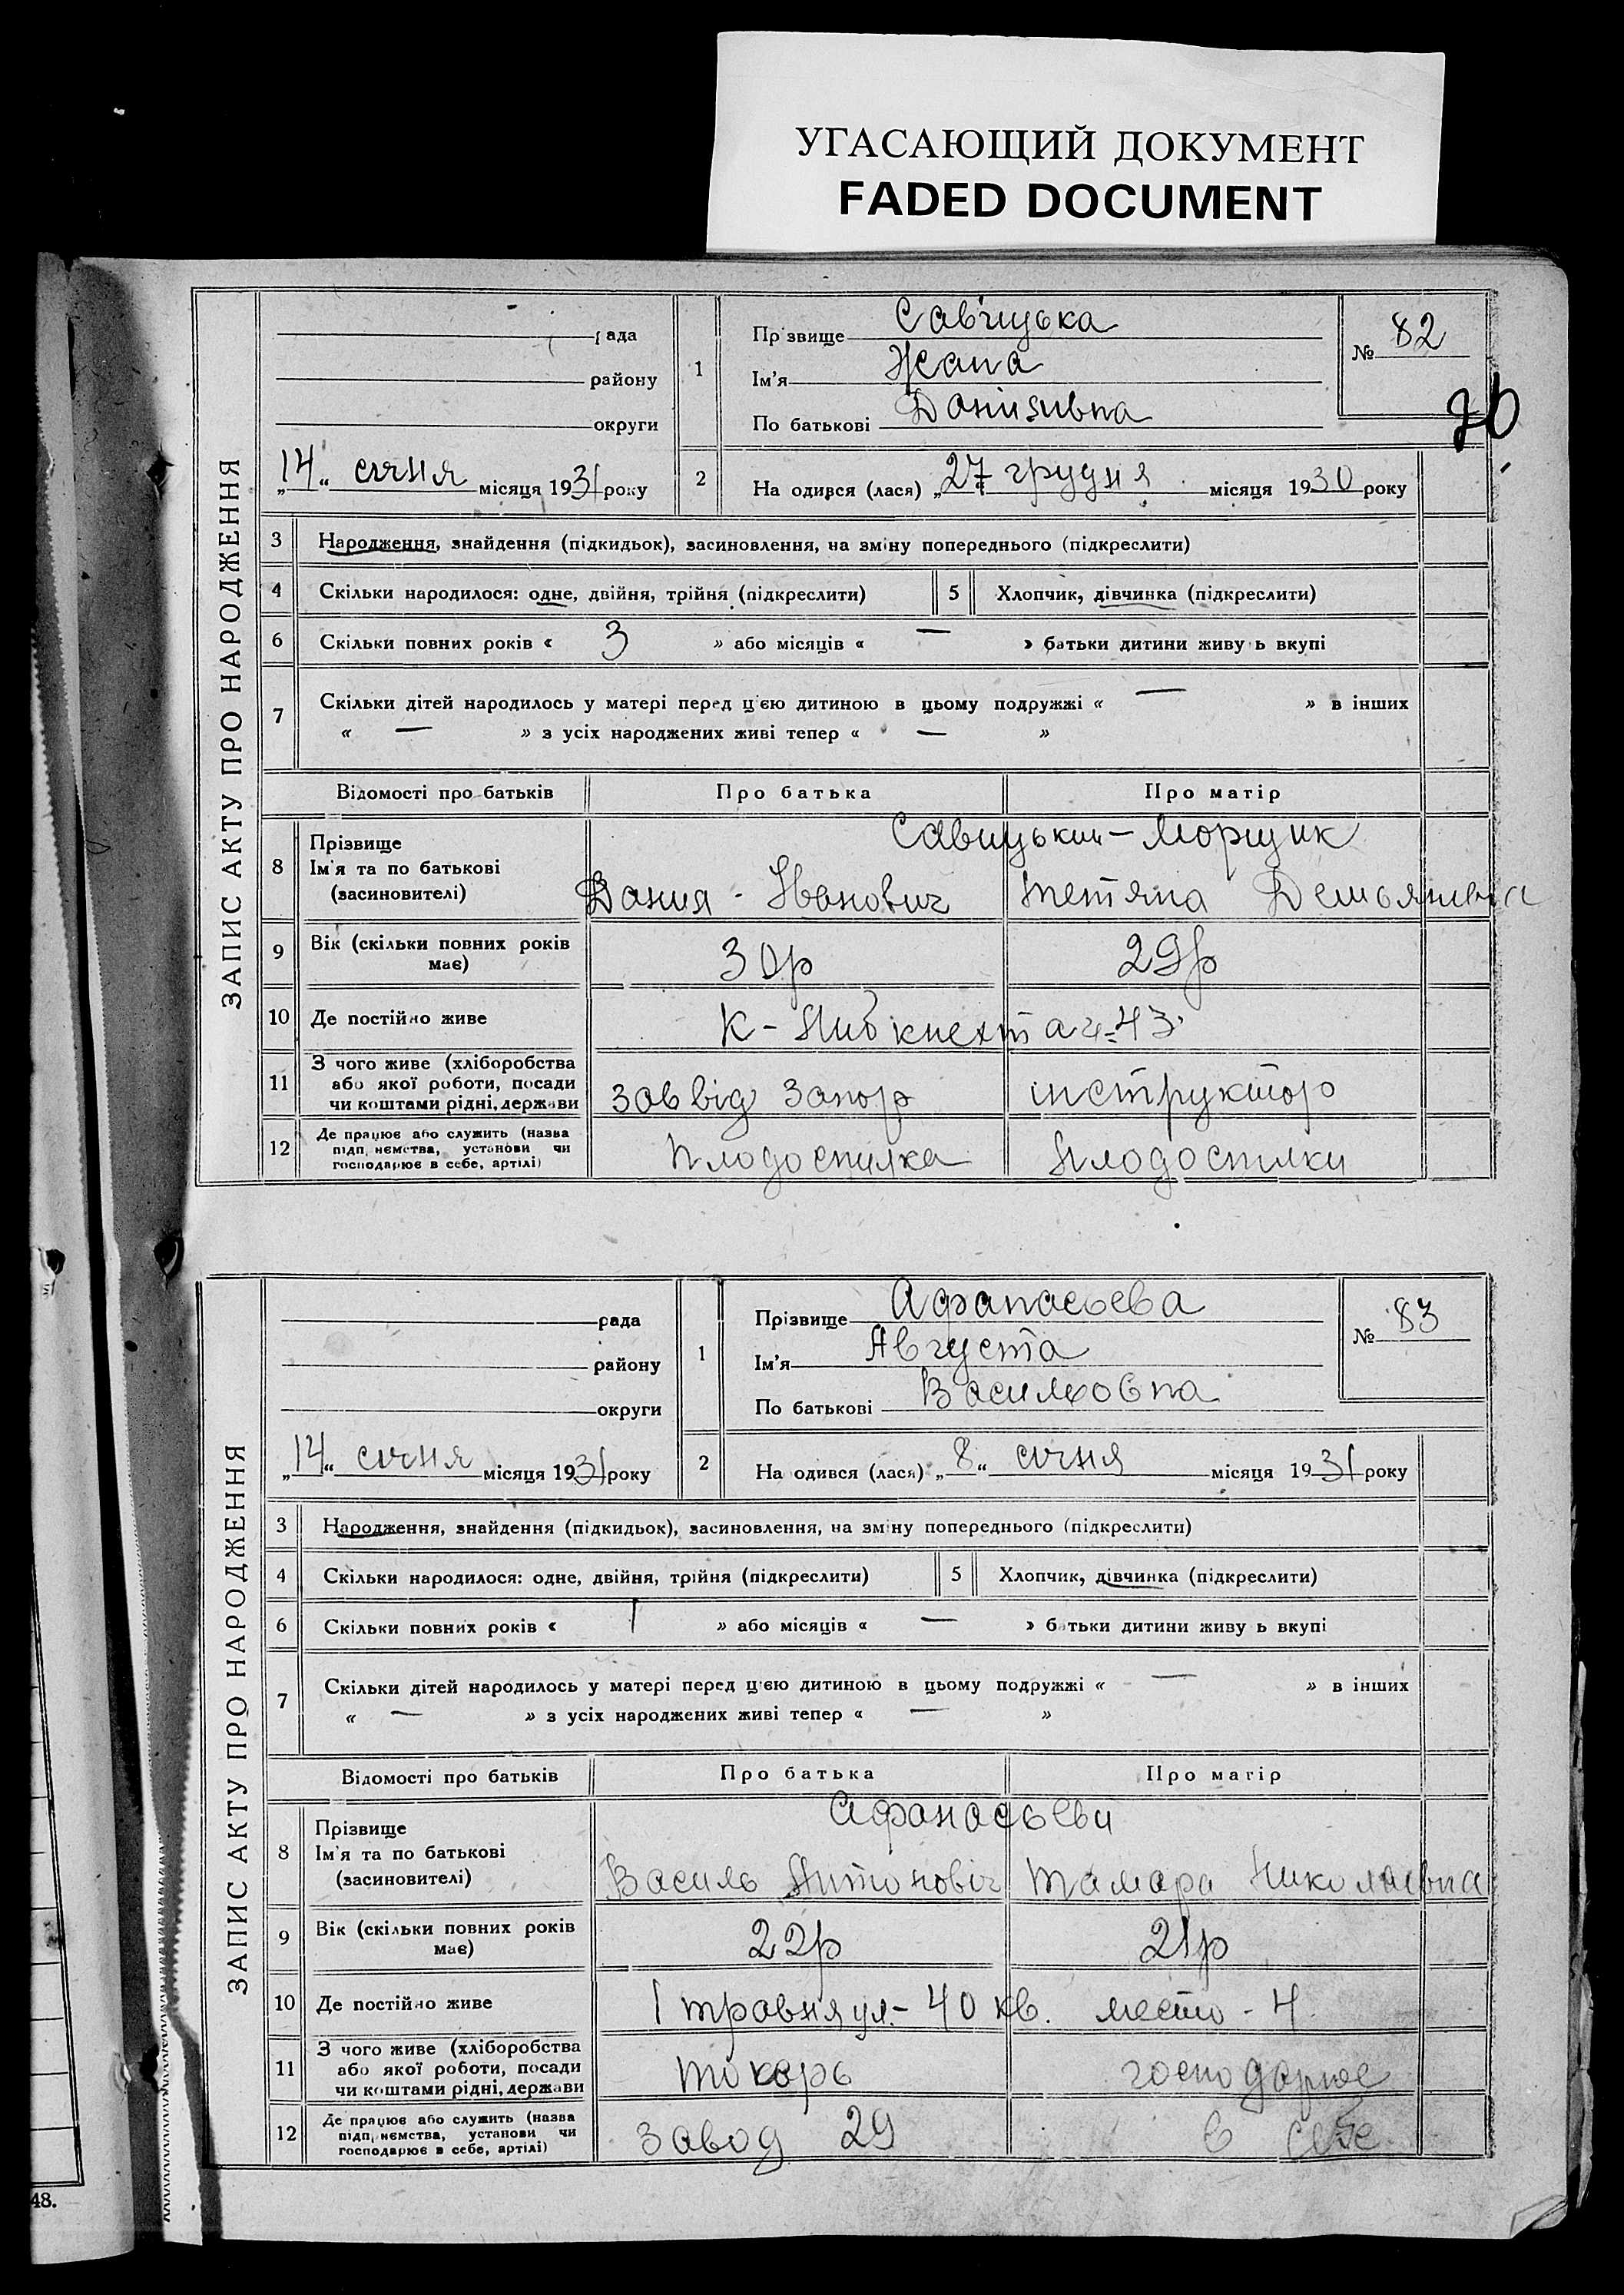 УГАСАЮЩИЙ ДОКУМЕНТ
FADED DOCUMENT
ЗАПИС АКТУ ПРО НАРОДЖЕННЯ
рада
району
округи
„14“ січня місяця 1931 року
1
Прізвище Савіцька
Ім'я Жана
По батькові Данилівна
№ 82
2
На одився (лася) „27 грудня місяця 1930 року
3 Народження, знайдення (підкидьок), засиновлення, на зміну попереднього (підкреслити)
4 Скільки народилося: одне, двійня, трійня (підкреслити) 5 Хлопчик, дівчинка (підкреслити)
6 Скільки повних років « 3 » або місяців « — » батьки дитини живу ь вкупі
7 Скільки дітей народилось у матері перед цією дитиною в цьому подружжі « — » в інших
« — » з усіх народжених живі тепер « — »
Відомості про батьків Про батька Про матір
8 Прізвище
Ім'я та по батькові
(засновителі)
Савицький - Морщик
Данил - Іванович Тетяна Демьянівна
9 Вік (скільки повних років має) 30р 29р
10 Де постійно живе К - Либкнехта ч-43
11 З чого живе (хліборобства
або якої роботи, посади
чи коштами рідні, держави
Зав від Запор інструктор
12 Де працює або служить (назва
підп, немства, установи чи
господарює в себе, артілі)
Плодоспилка Плодоспилки
ЗАПИС АКТУ ПРО НАРОДЖЕННЯ
рада
району
округи
„14“ січня місяця 1931 року
1
Прізвище Афанасьева
Ім'я Августа
По батькові Василховна
№ 83
2
На одився (лася) „8“ січня місяця 1931 року
3 Народження, знайдення (підкидьок), засиновлення, на зміну попереднього (підкреслити)
4 Скільки народилося: одне, двійня, трійня (підкреслити) 5 Хлопчик, дівчинка (підкреслити)
6 Скільки повних років « 1 » або місяців « — » батьки дитини живу ь вкупі
7 Скільки дітей народилось у матері перед цією дитиною в цьому подружжі « — » в інших
« — » з усіх народжених живі тепер « — »
Відомості про батьків Про батька Про матір
8 Прізвище
Ім'я та по батькові
(засиновителі)
Афанасьеви
Василь Антоновіч Тамара Николаевна
9 Вік (скільки повних років має) 22р 21р
10 Де постійно живе 1 травня ул.- 40 кв. место - 4
11 З чого живе (хліборобства
або якої роботи, посади
чи коштами рідні, держави
токарь господарюе
12 Де працює або служить (назва
підп, немства, установи чи
господарює в себе, артілі)
Завод 29 в себе
48.